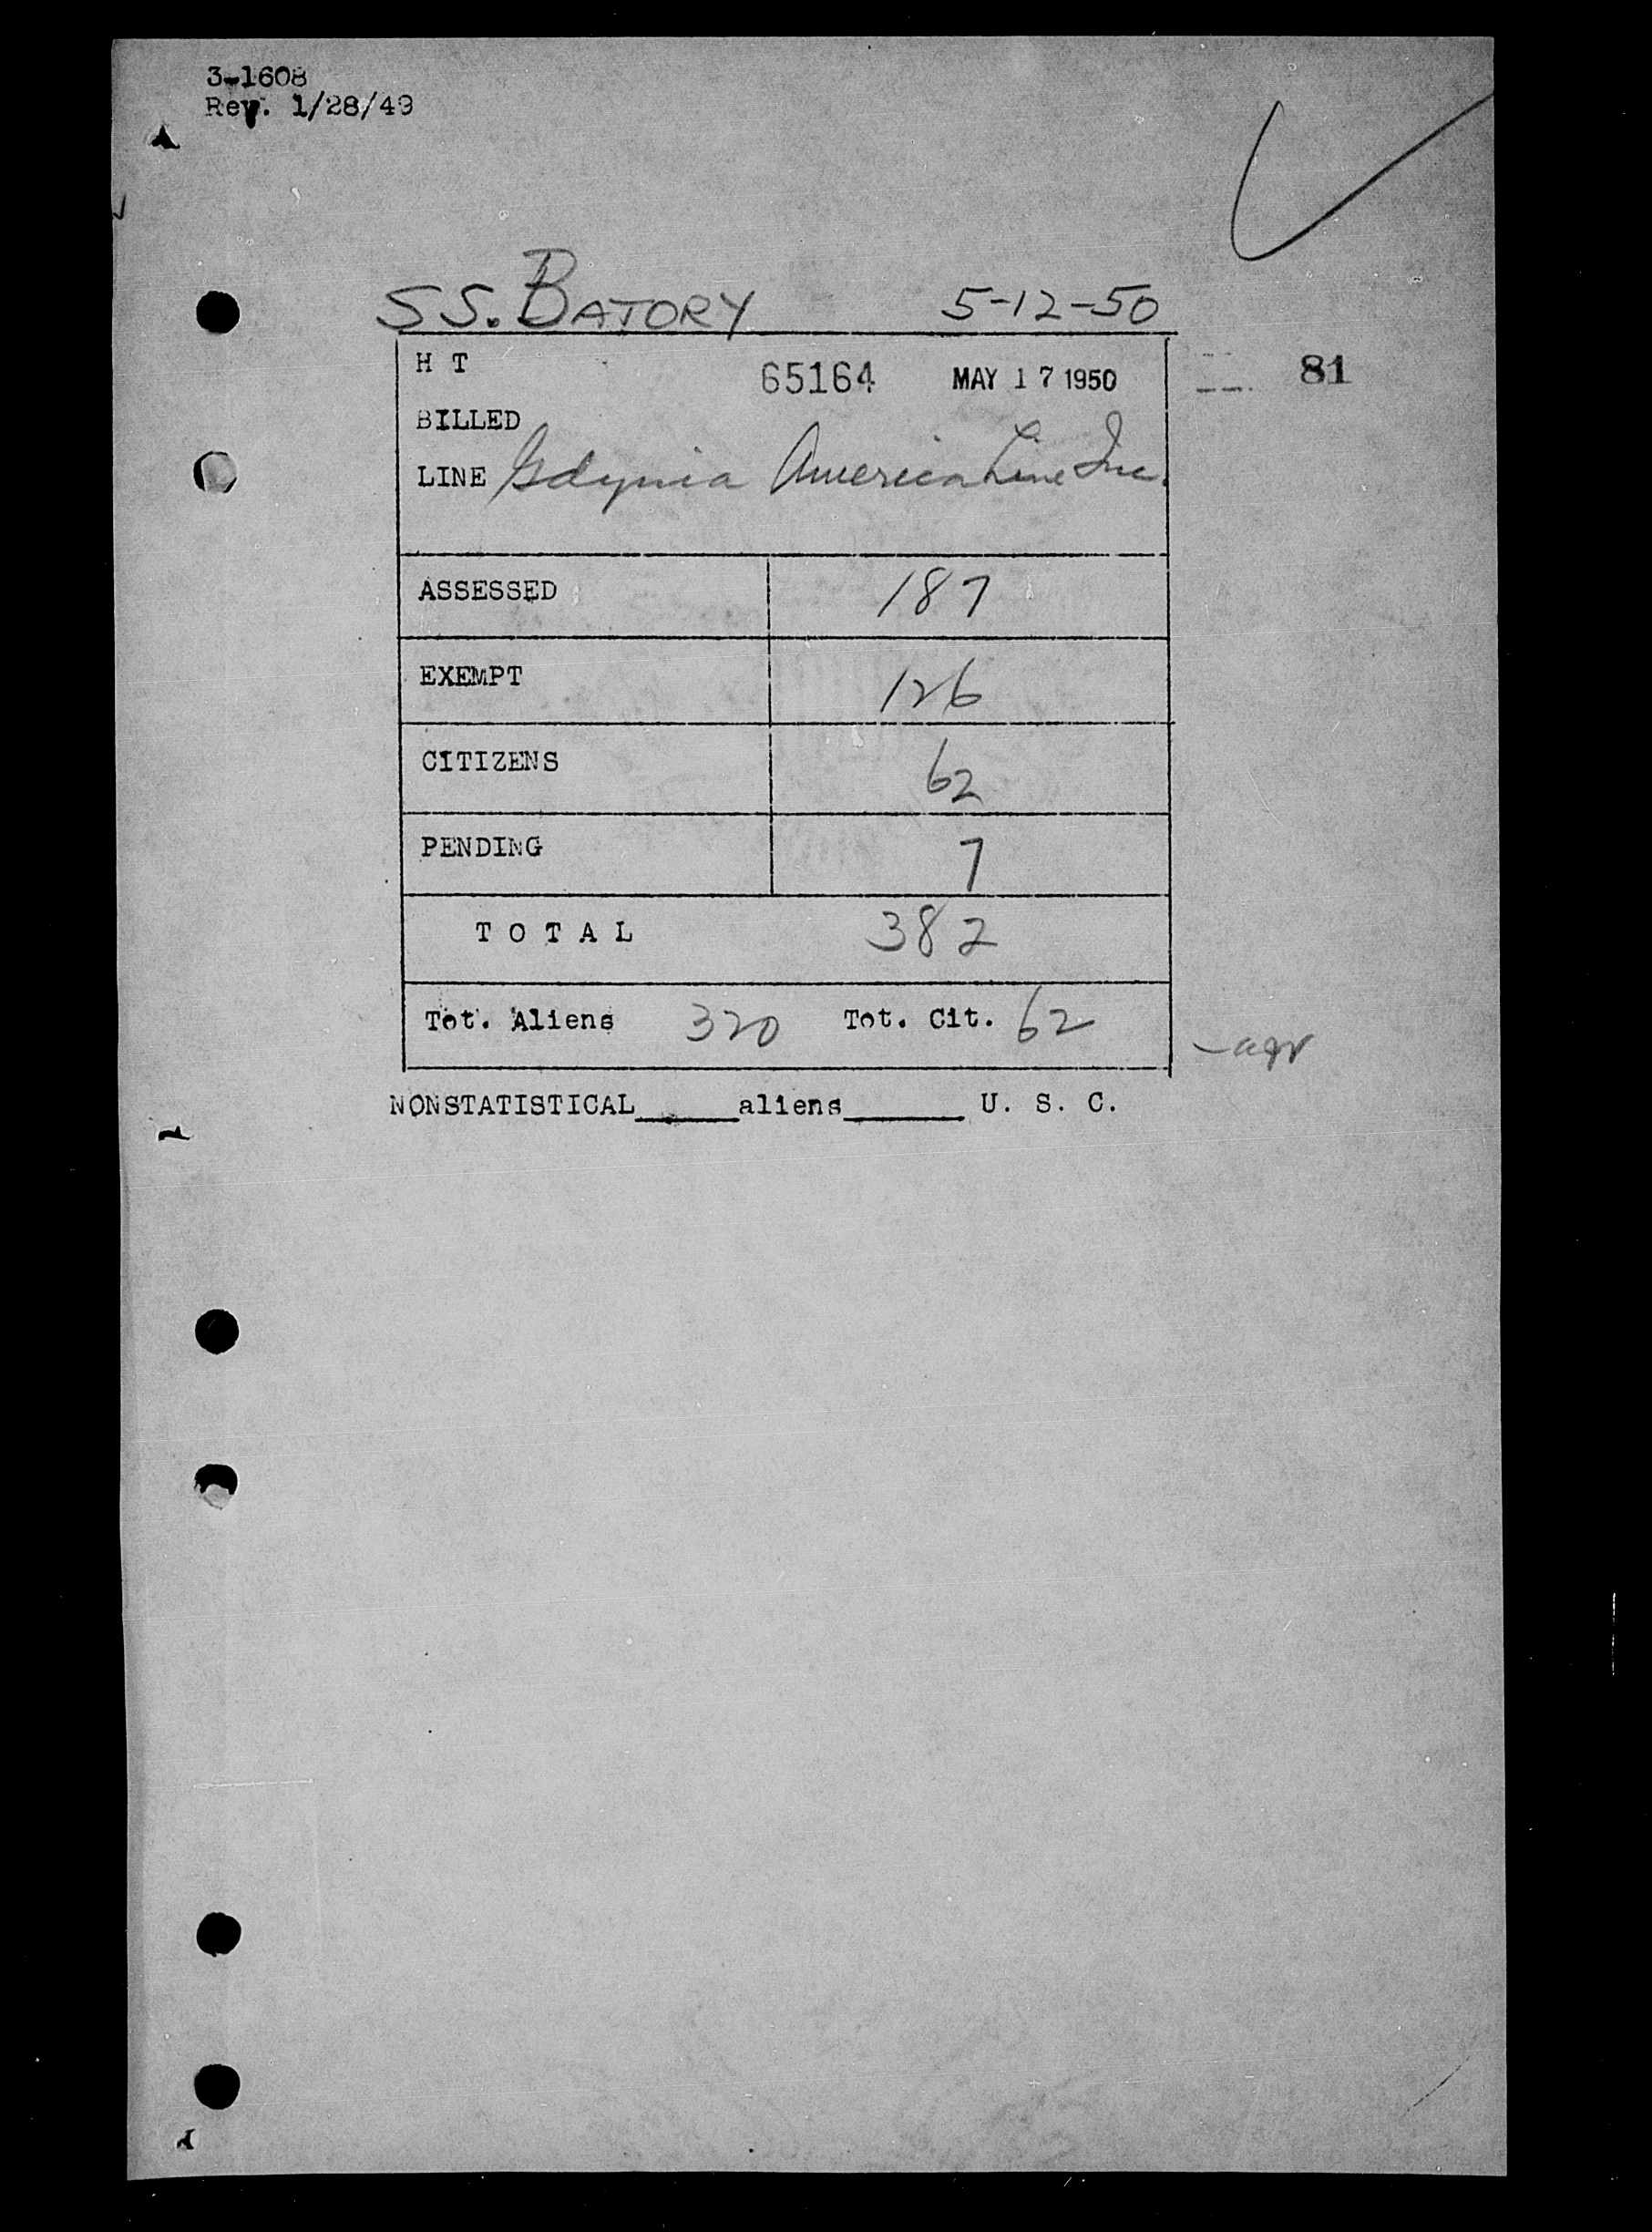 3-1608
Rev. 1/28/49
SS. BATORY 5-12-50
H T 65164 MAY 17 1950 81
BILLED
LINE Gdynia America Line Inc.
ASSESSED 187
EXEMPT 126
CITIZENS 62
PENDING 7
T O T A L 382
Tot. Aliens 320 Tot. Cit. 62
NONSTATISTICAL______aliens_______ U. S. C.